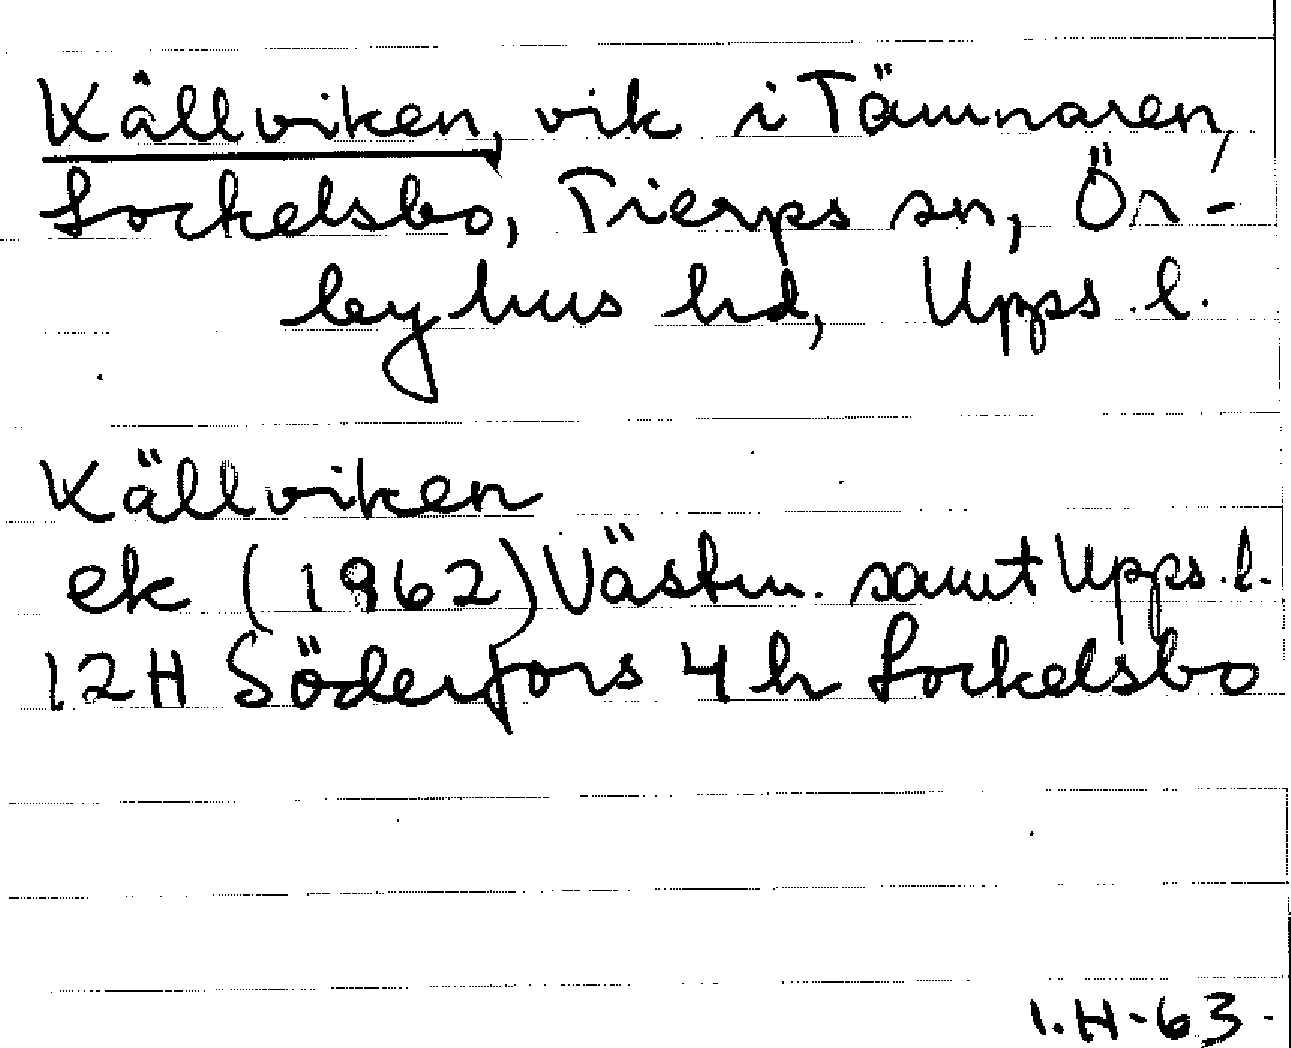 Källviken, vik i Tämnaren,
Sockelsbo, Tierps sn, Ör-
byhus hd, Upps. l.
Källviken
ek (1962) Västm. samt Upps. l.
12H Söderfors 4h Sockelsbo
I.H-63-